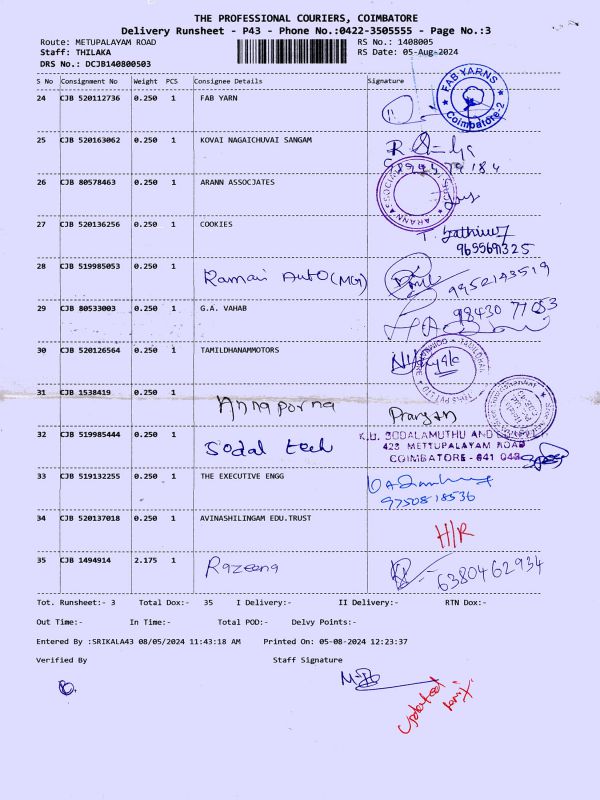 THE PROFESSIONAL COURIERS, COIMBATORE
Delivery Runsheet - P43 - Phone No.:0422-3505555 - Page No.:3
Route: METUPALAYAM ROAD RS No.: 1408005
Staff: THILAKA RS Date: 05-Aug-2024
DRS No.: DCJB140800503
S No Consignment No Weight PCS Consignee Details Signature
24 CJB 520112736 0.250 1 FAB YARN
FAB YARNS Coimbatore-2
25 CJB 520163062 0.250 1 KOVAI NAGAICHUVAI SANGAM
26 CJB 80578463 0.250 1 ARANN ASSOCJATES
27 CJB 520136256 0.250 1 COOKIES
28 CJB 519985053 0.250 1 Ramani Auto (MG) 9952143519
29 CJB 80533003 0.250 1 G.A. VAHAB 98430 77053
30 CJB 520126564 0.250 1 TAMILDHANAMMOTORS
31 CJB 1538419 0.250 1 Annaporna
32 CJB 519985444 0.250 1 Sodal tech
K.U. SODALAMUTHU AND
423 METTUPALAYAM ROAD
COIMBATORE - 641 043
33 CJB 519132255 0.250 1 THE EXECUTIVE ENGG
9750818536
34 CJB 520137018 0.250 1 AVINASHILINGAM EDU.TRUST H/R
35 CJB 1494914 2.175 1 Razeena 6380462934
Tot. Runsheet:- 3 Total Dox:- 35 I Delivery:- II Delivery:- RTN Dox:-
Out Time:- In Time:- Total POD:- Delvy Points:-
Entered By :SRIKALA43 08/05/2024 11:43:18 AM Printed On: 05-08-2024 12:23:37
Verified By Staff Signature
Updated